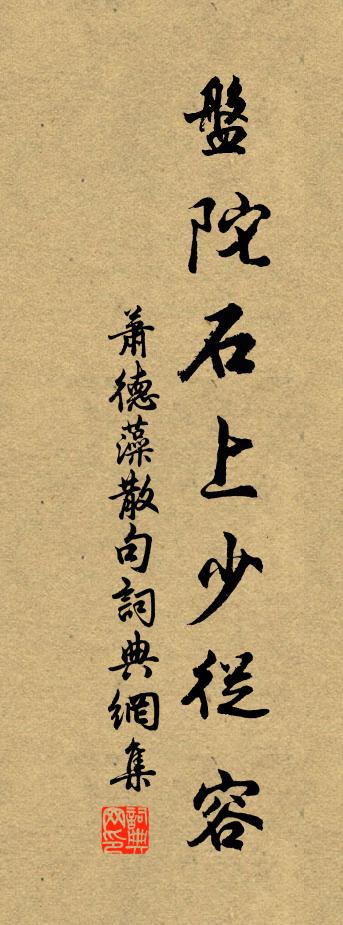 盤陀石上少從容
蕭德藻散句詞典網集
詞典網印